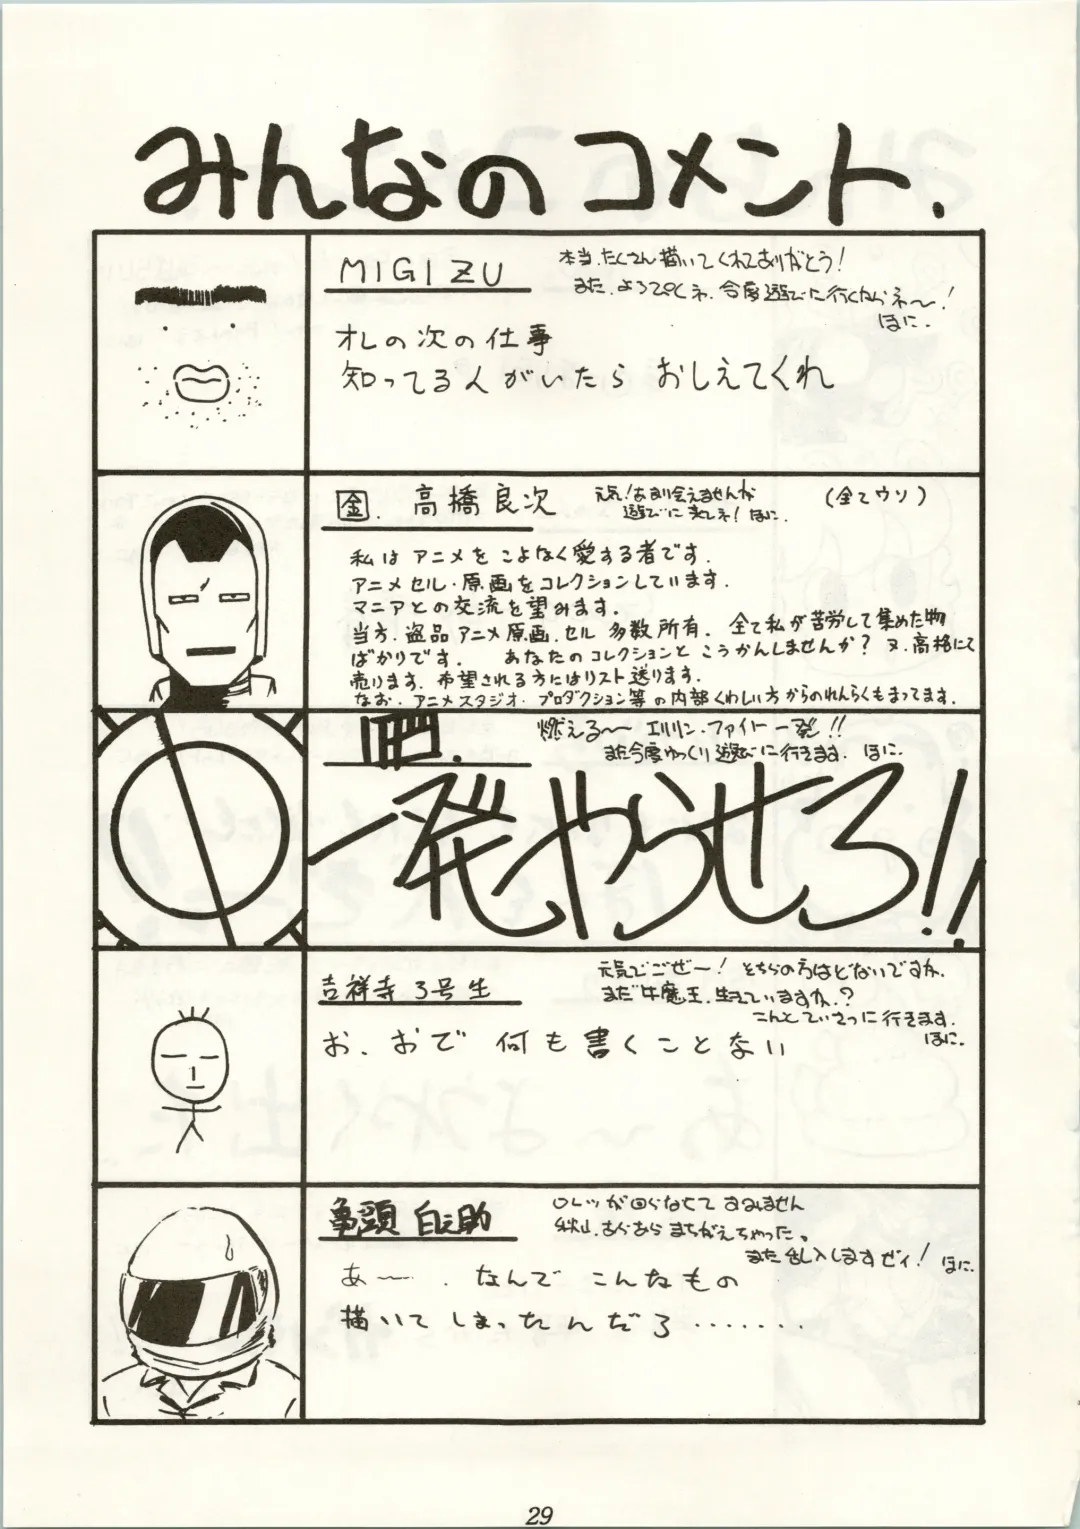 みんなのコメント.
MIGIZU
本当.たくさん描いてくれてありがとう!
また.よろぴくネ.今度遊びに行くからネ〜!
ほに.
オレの次の仕事
知ってる人がいたら おしえてくれ
金. 高橋良次
元気!あまり会えませんが
遊びに来しネ! ほに.
(全てウソ)
私は アニメを こよなく愛する者です.
アニメセル・原画をコレクションしています.
マニアとの交流を望みます.
当方.盗品アニメ原画.セル 多数所有. 全て私が苦労して集めた物
ばかりです. あなたのコレクションと こうかんしませんか? 又.高格にて
売ります. 希望される方にはリスト送ります.
なお.アニメスタジオ.プロダクション等の内部くわしい方からのれんらくもまってます.
肥.
燃える〜 エリリン・ファイト一発!!
また今度ゆっくり遊びに行きます. ほに.
一発やらせろ!!
吉祥寺 3号生
元気でごぜー! そちらの方はどないですか.
まだ牛魔王.生きていますか.?
こんどていさつに行きます.
ほに.
お.おで 何も書くことない
亀頭 白之助
ロレツが回らなくて すみません
秋山.あらあら まちがえちゃった。
また乱入しますゼィ! ほに.
あ〜. なんで こんなもの
描いて しまったんだろ・・・・・・・
29